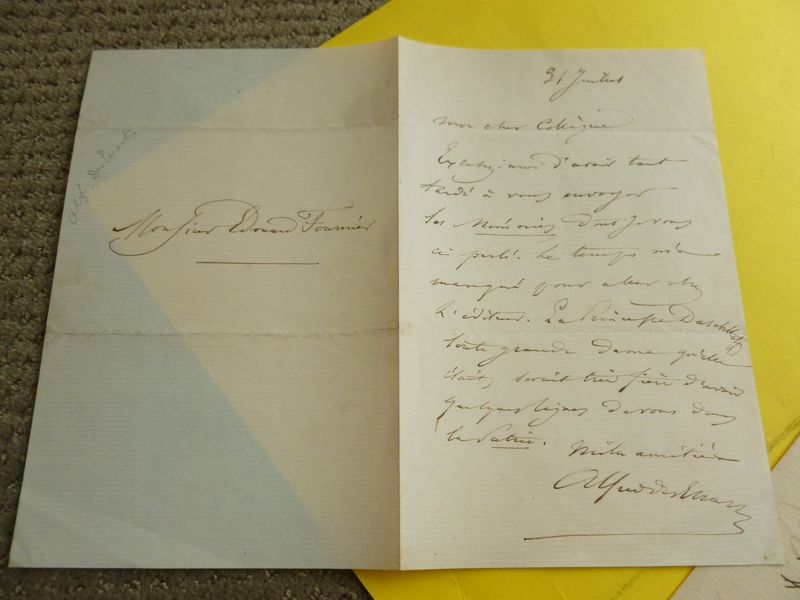 Monsieur Edouard Fournier
31 Juillet
Mon cher Collègue
Excusez-moi d'avoir tant
tardé à vous envoyer
les Mémoires dont je vous
ai parlé. Le temps m'a
manqué pour aller chez
l'éditeur. La Princesse Daschkoff
toute grande dame qu'elle
était, serait très fière d'avoir
quelques lignes de vous dans
la Patrie.
Mille amitiés
Alfred des Essarts